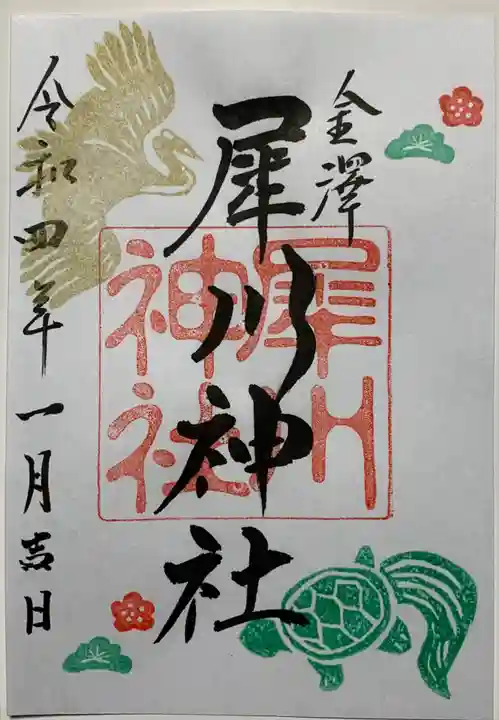 金澤
犀川神社
犀川
神社
令和四年一月吉日